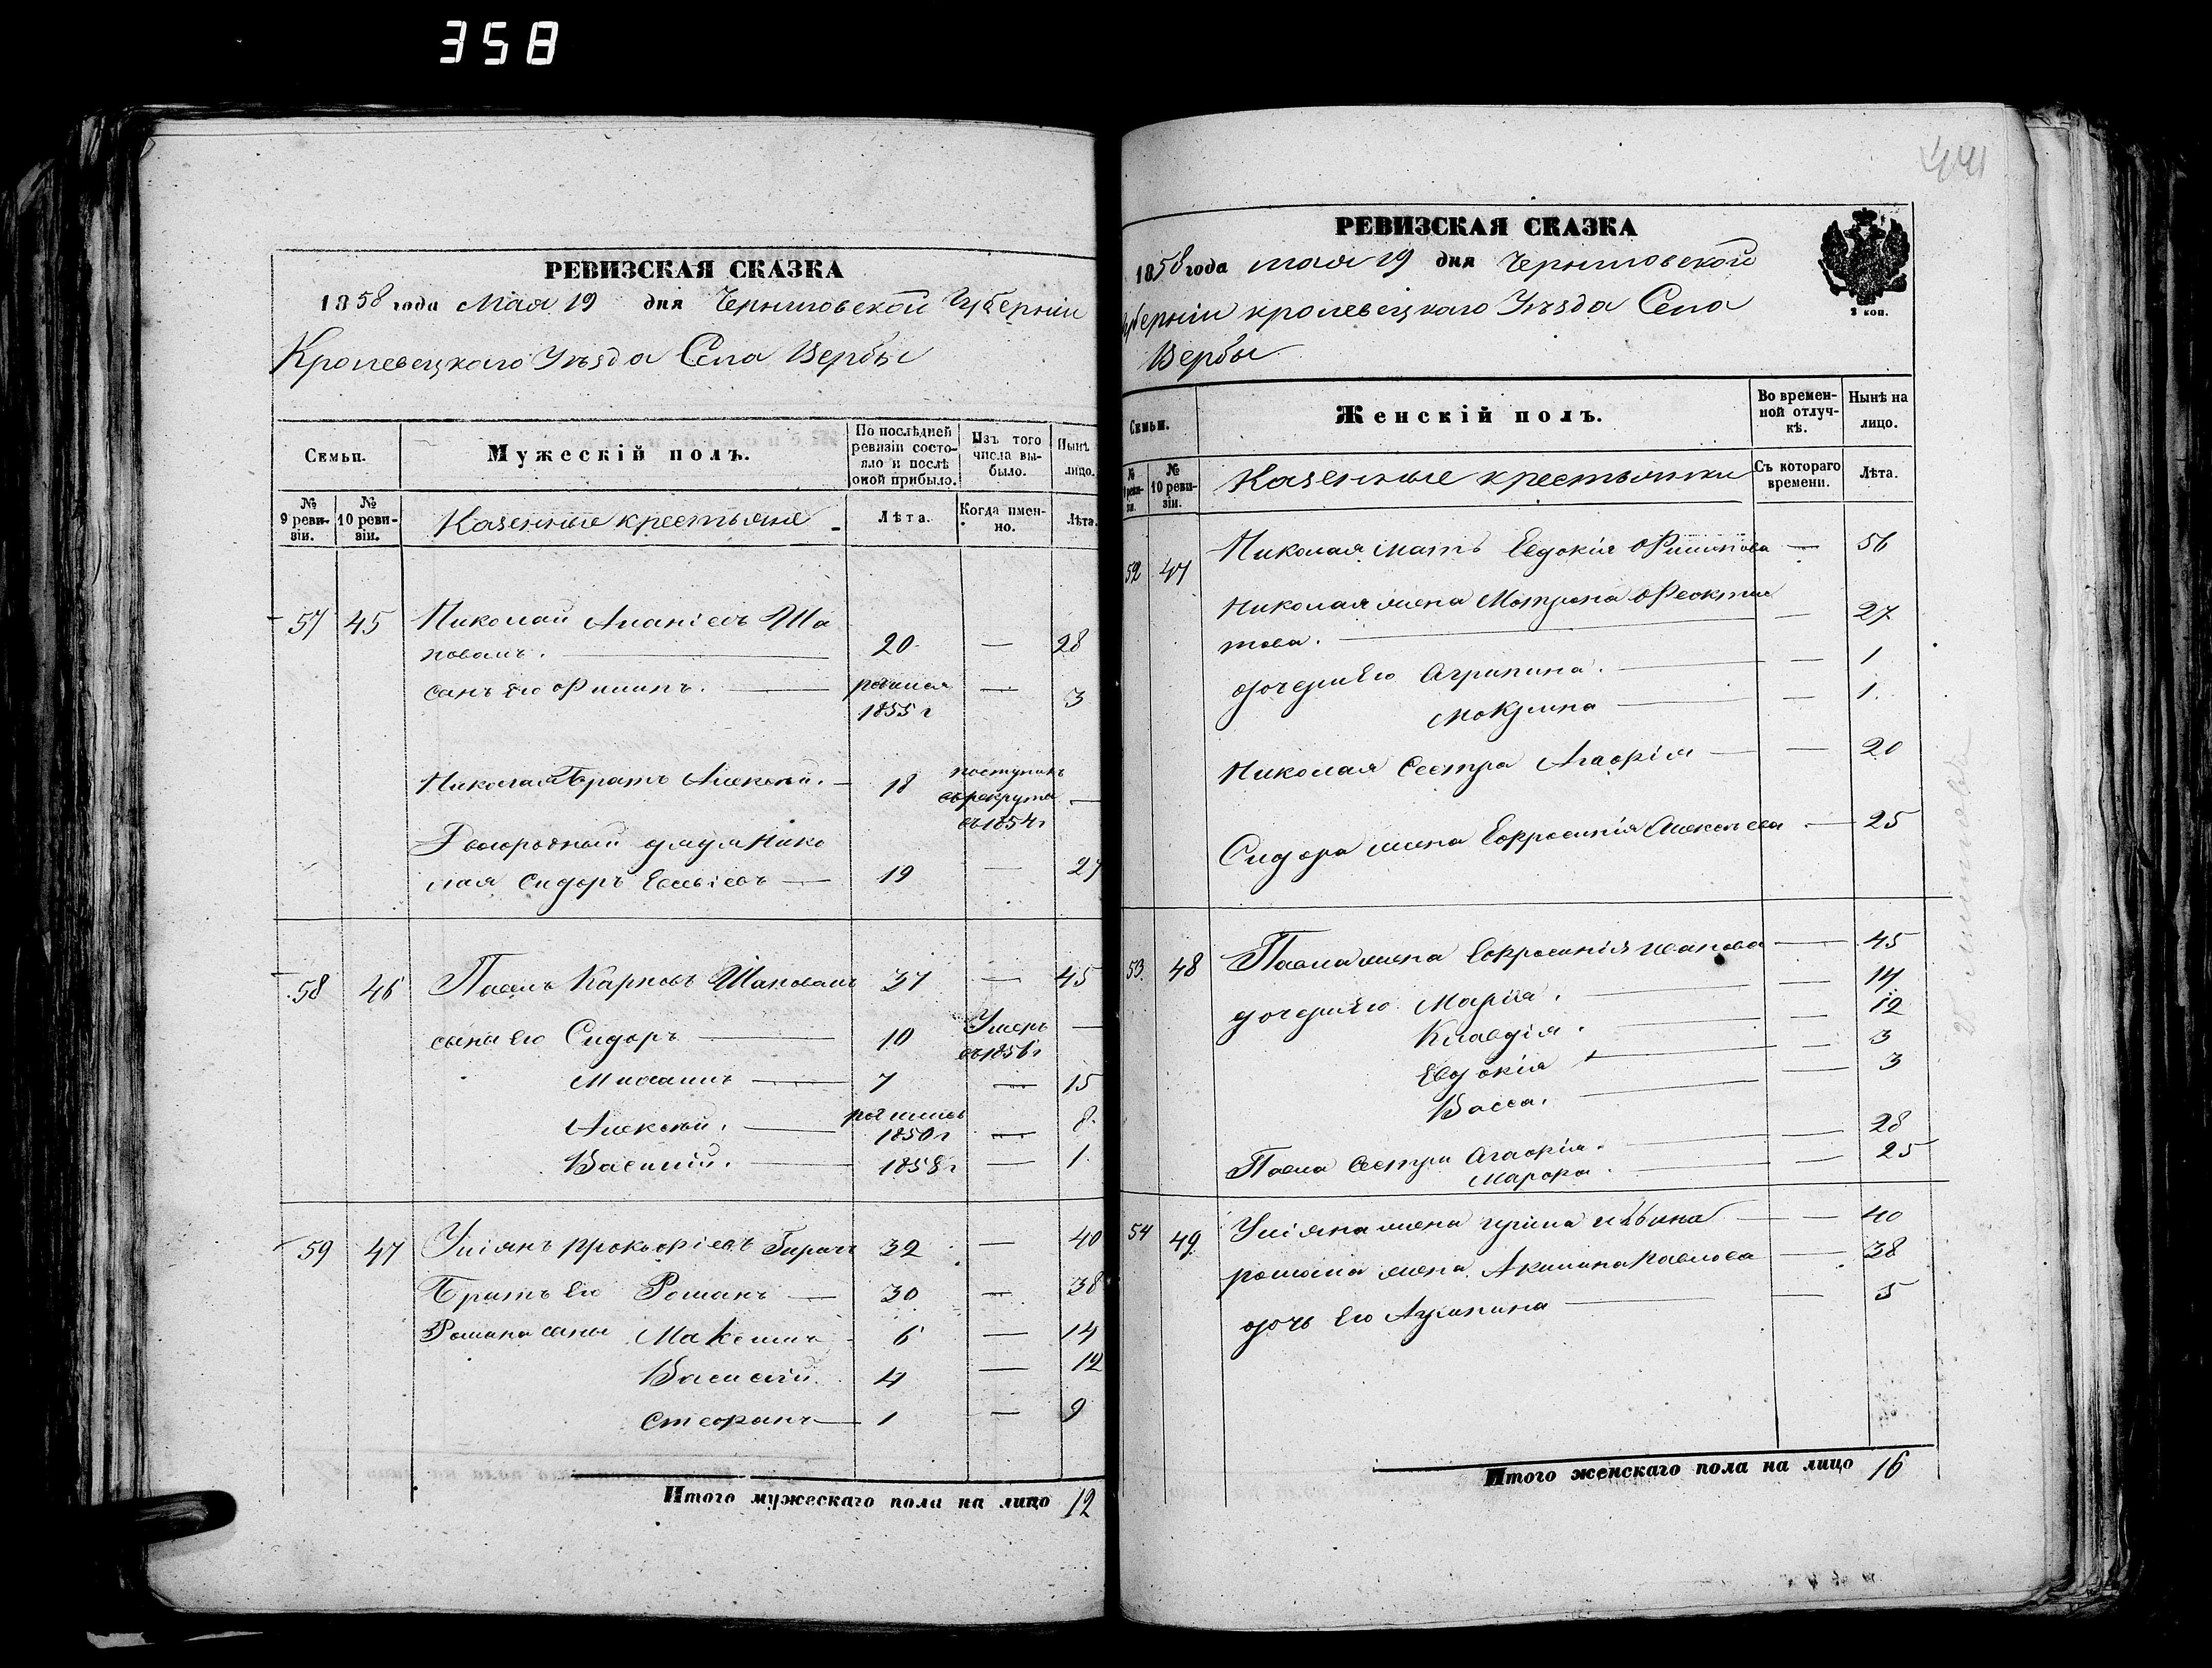 358
РЕВИЗСКАЯ СКАЗКА
1858 года Мая 19 дня Черниговской Губерніи
Кролевецкаго Уѣзда Села Вербы
Семьи.
Мужескій полъ.
По послѣдней ревизіи состояло и послѣ оной прибыло.
Изъ того числа выбыло.
Нынѣ лицо.
№ 9 ревизіи.
№ 10 ревизіи.
Казенные крестьяне
Лѣта.
Когда именно.
Лѣта.
57 45 Николай Ананіевъ Ша
повалъ. 20 — 28
сынъ его Филипъ. 1855 г — 3
Николая братъ Алексѣй. — 18 поступилъ въ рекруты въ 1854 г —
Двоюродный дядя Нико
лая Сидоръ Евсѣевъ — 19 — 27
58 46 Павелъ Карповъ Шаповалъ 37 — 45
сыны его Сидоръ 10 Умеръ въ 1856 г —
Михаилъ 7 — 15
Алексѣй. 1850 г — 8.
Василій. 1858 г — 1.
59 47 Уліянъ Прокофіевъ 32 — 40
Братъ его Романъ 30 — 38
Романа сыны Максимъ 6 — 14
Василій. 4 — 12
Стефанъ 1 — 9
Итого мужескаго пола на лицо 12
441
РЕВИЗСКАЯ СКАЗКА
1858 года мая 19 дня Черниговской
Губерніи кролевецкаго Уѣзда Села
Вербы
2 коп.
Семьи.
Женскій полъ.
Во временной отлучкѣ.
Нынѣ на лицо.
№ 9 ревизіи.
№ 10 ревизіи.
Казенные крестьянки
Съ котораго времени.
Лѣта.
52 47 Николая мать Евдокія Филипова — 56
Николая жена Мотрона Феокти
това. — 27
дочери его Агрипина. — 1
Мокрина — 1.
Николая Сестра Агафія — 20
Сидора жена Ефросинія Алексѣева. — 25
53 48 Павла жена Ефросинія Иванова — 45
дочери его Марія. — 14
Клавдія. — 12
Евдокія — 3
Васса. — 3
Павла Сестри Агафія. — 28
Марфа. — 25
54 49 Уліяна жена — 40
Романа жена Акилина Павлова — 38
дочь его Агрипина — 5
Итого женскаго пола на лицо 16